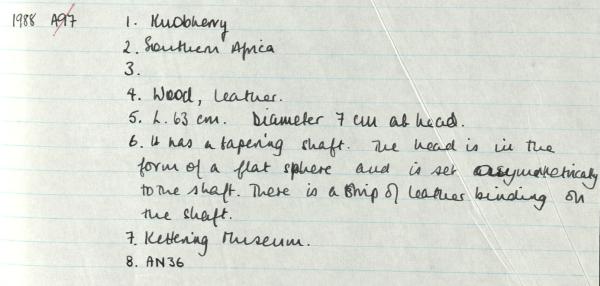 1988 A97 1. Knobkerry
2. Southern Africa
3.
4. Wood, leather.
5. L. 63 cm. Diameter 7 cm at head.
6. It has a tapering shaft. The head is in the
form of a flat sphere and is set asymmetrically
to the shaft. There is a strip of leather binding on
the shaft.
7. Kettering Museum.
8. AN36